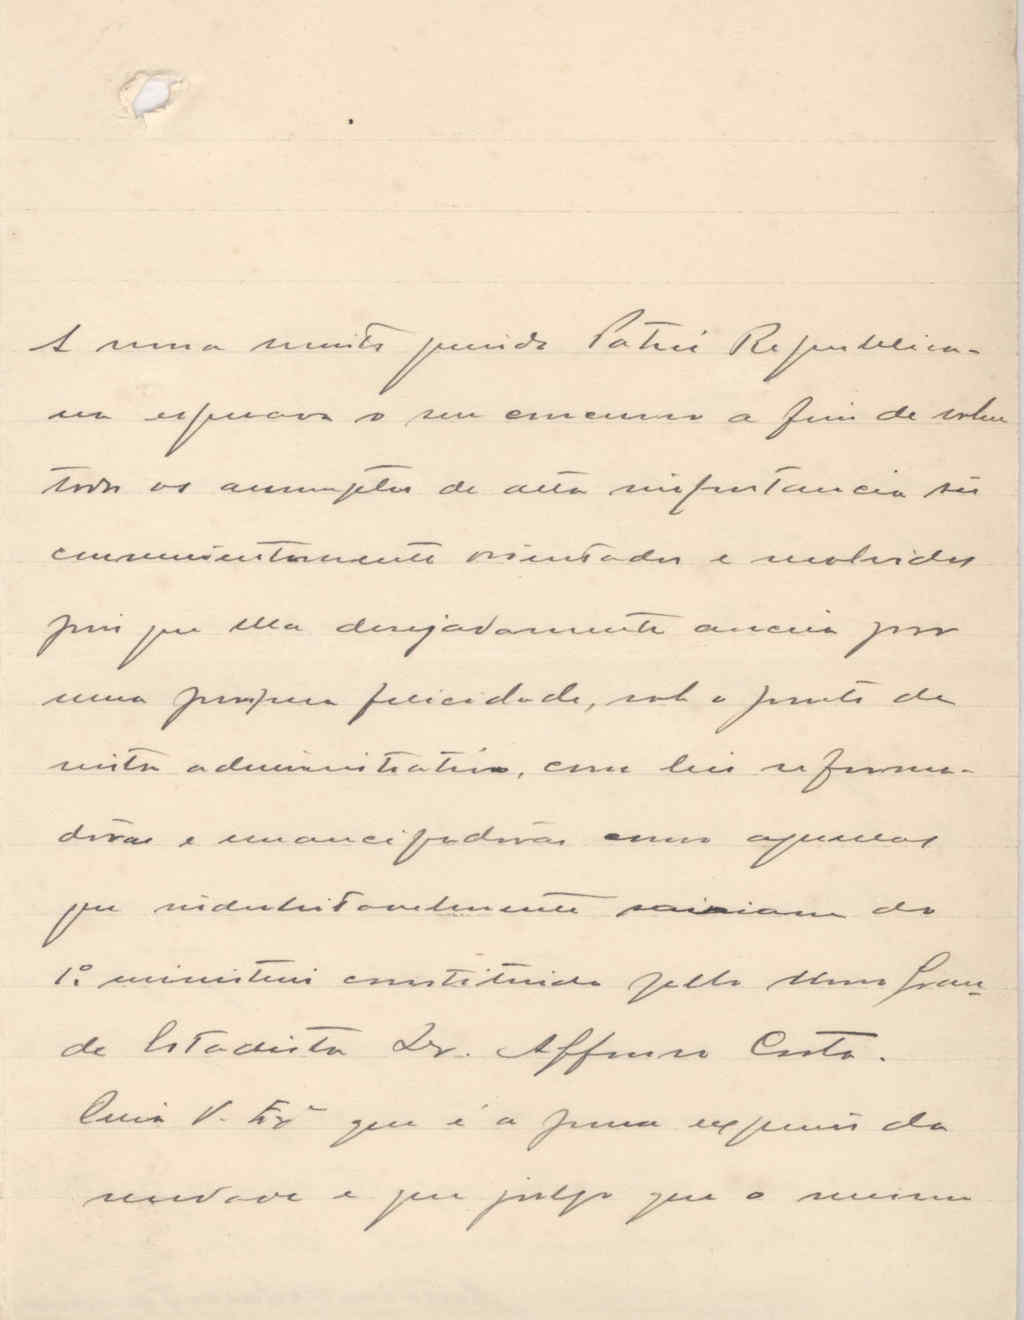 A nossa muito querida Patria Republica-
na esperava o seu concurso a fim de sobre
todos os assumptos de alta importancia ser
convenientemente orientados e resolvidos
pois que ella desejadamente anceia por
uma prospera felicidade, sob o ponto de
vista administrativo, com leis reforma-
dôras e emancipadôras como aquellas
que indubitavelmente sairiam do
1º ministerio constituido pello Nosso Gran-
de Estadista Dr. Affonso Costa.
Creia V. Exª que é a pura expressão da
verdade e que julgo que o mesmo